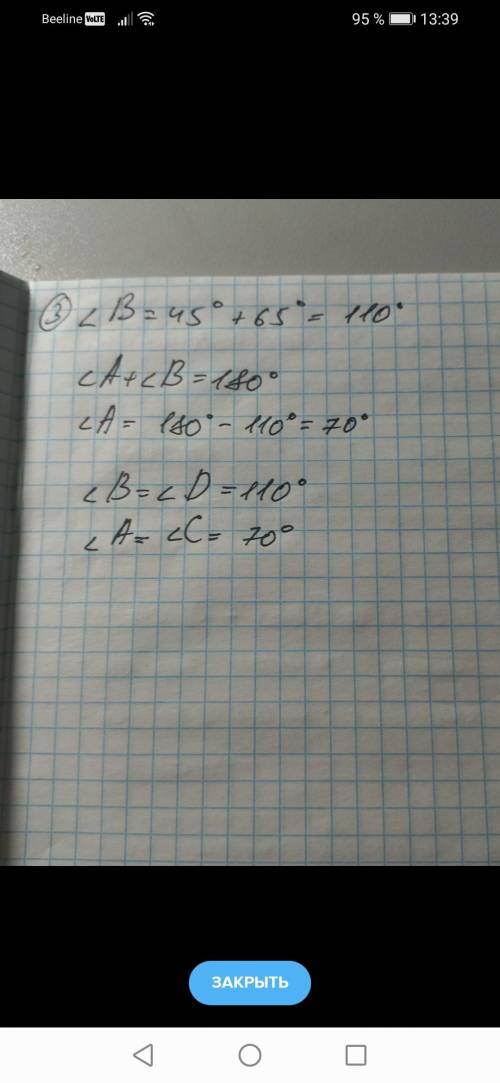 Beeline VoLTE 95 % 13:39
③ ∠B = 45° + 65° = 110°
∠A + ∠B = 180°
∠A = 180° - 110° = 70°
∠B = ∠D = 110°
∠A = ∠C = 70°
ЗАКРЫТЬ